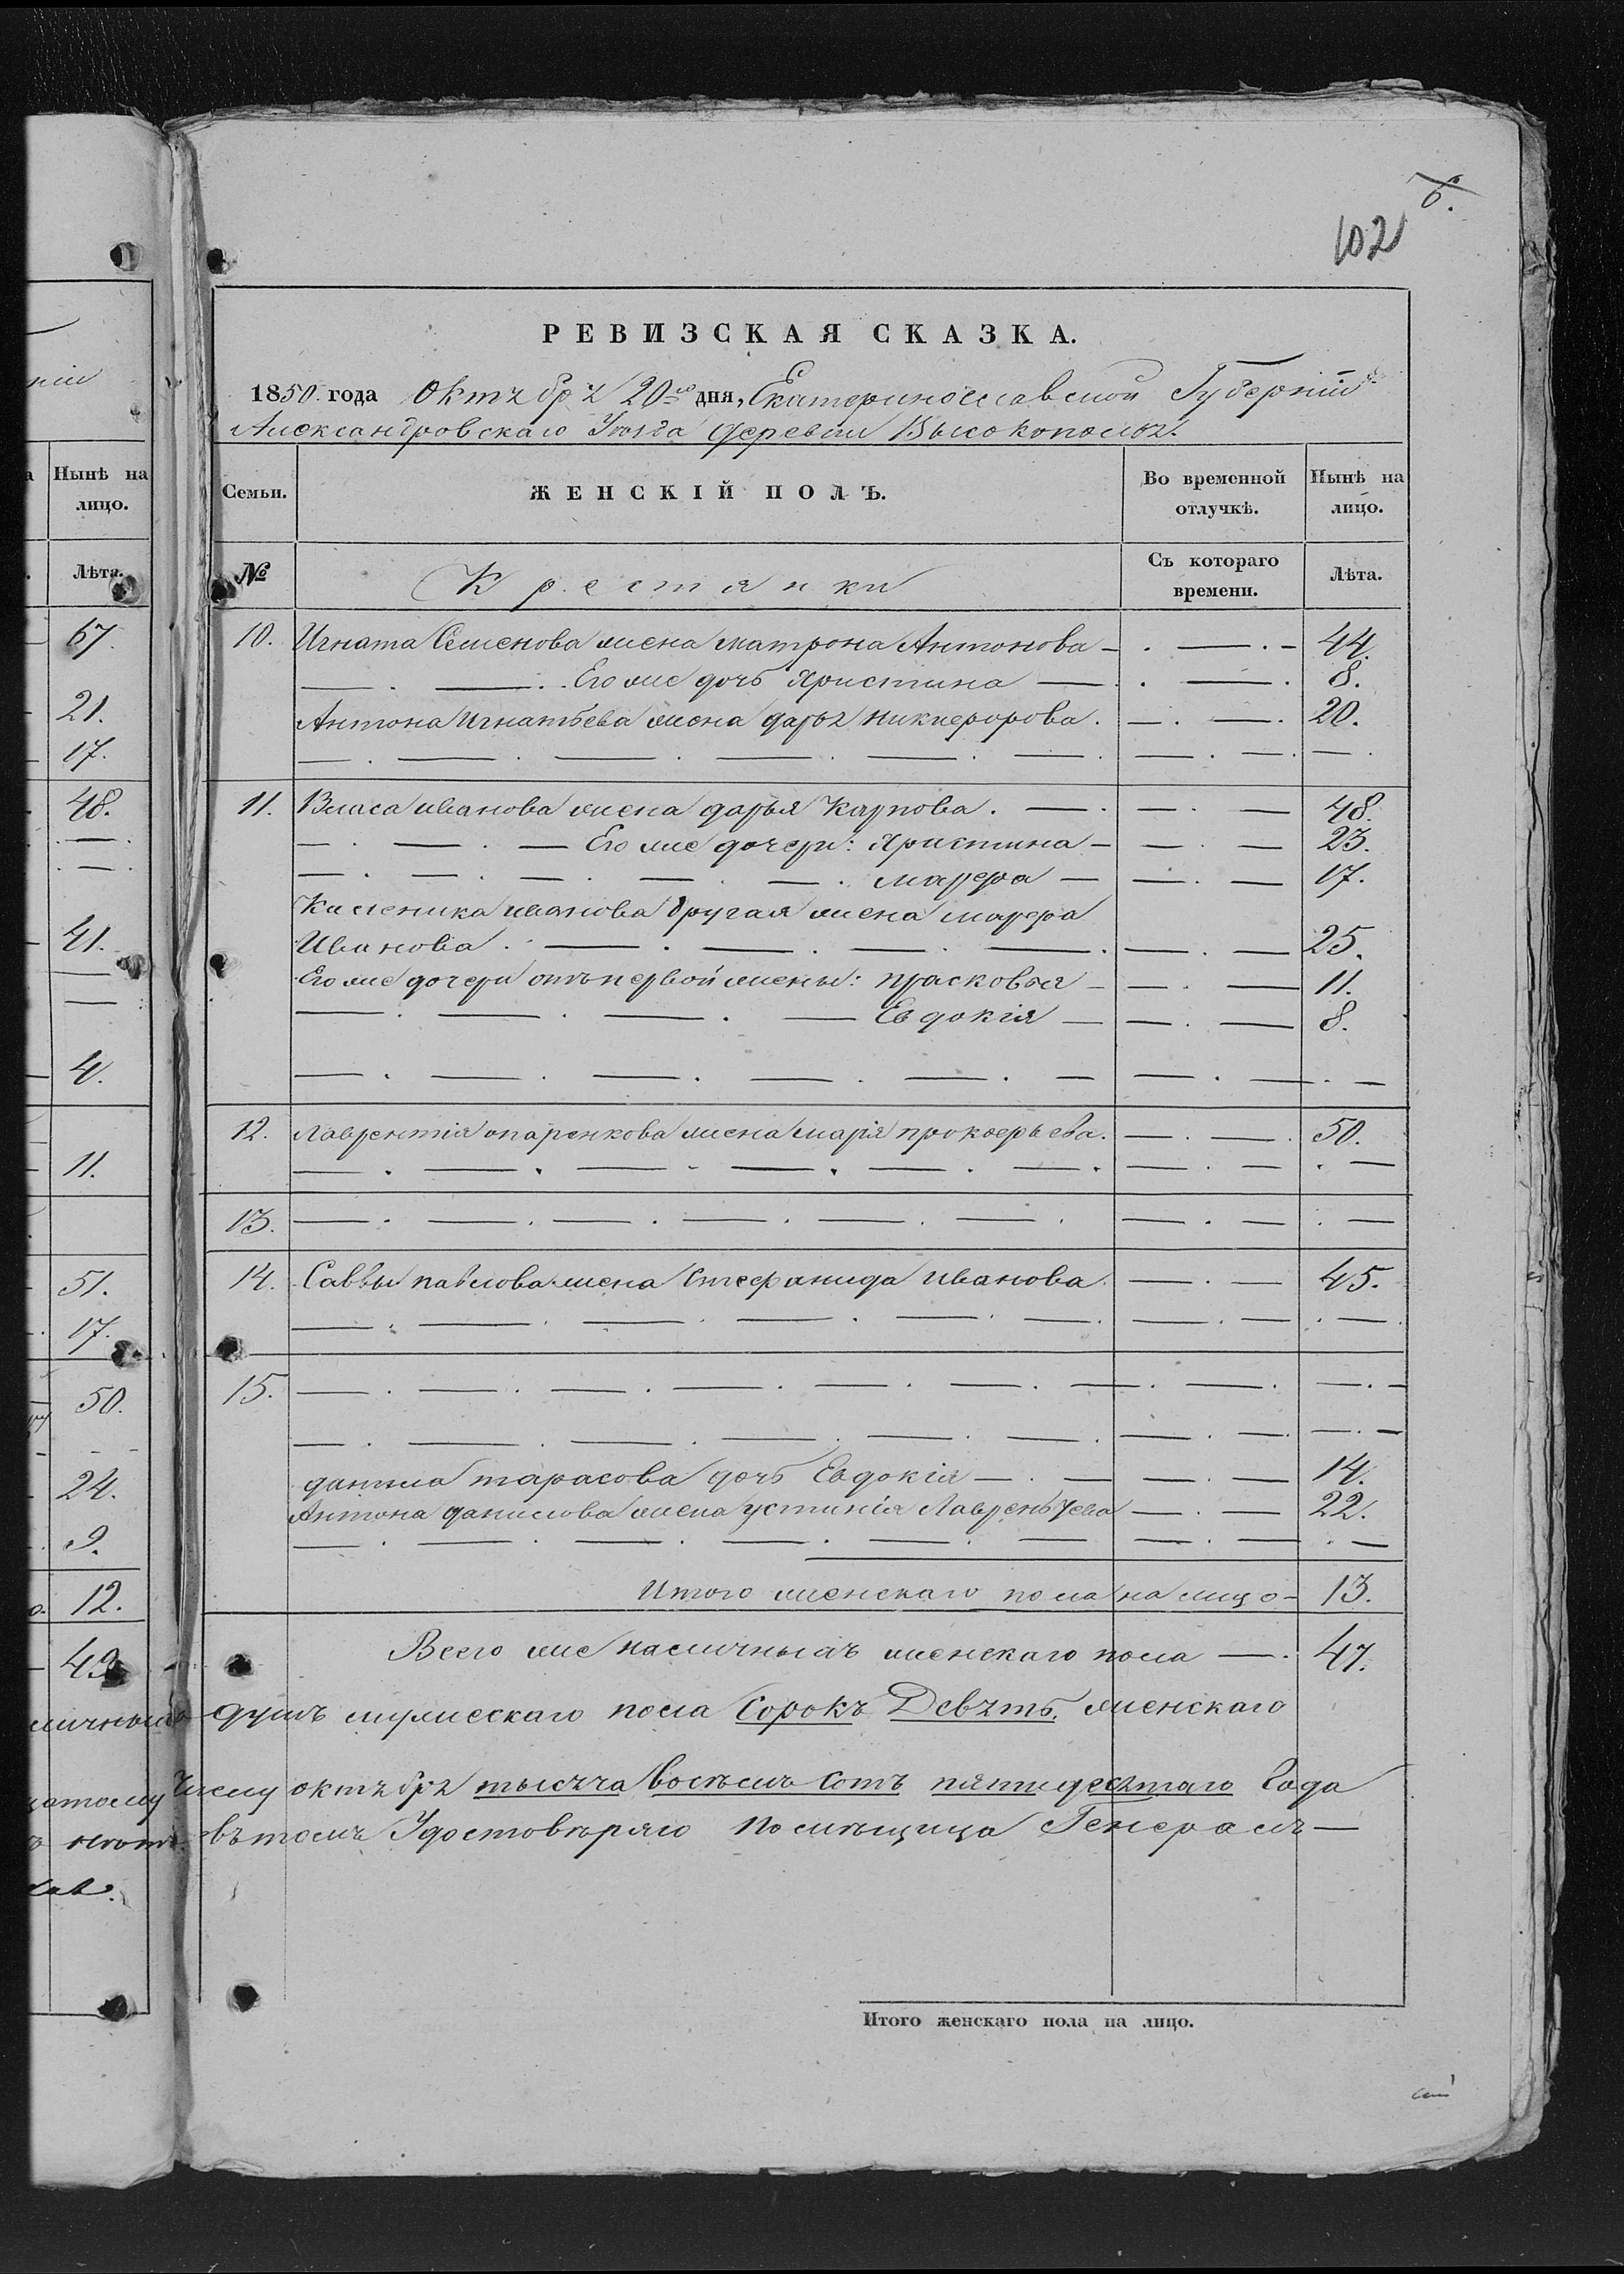 6.
102
РЕВИЗСКАЯ СКАЗКА.
1850 года Октября 20го дня, Екатеринославской Губерніи
Александровскаго Уѣзда деревни Высокополья.
Семьи.
ЖЕНСКІЙ ПОЛЪ.
Во временной отлучкѣ.
Нынѣ на лицо.
№
Крестянки
Съ котораго времени.
Лѣта.
10. Игната Семенова жена Матрона Антонова — 44.
Его же дочь Христина — 8.
Антона Игнатьева жена дарья никифорова. — 20.
11. Власа иванова жена дарья Карпова. — 48.
Его же дочери: Христина — 23.
Марфа — 17.
иванова другая жена марфа
Иванова. — 25.
Его же дочери отъ первой жены: прасковья — 11.
Евдокія — 8.
12. Лаврентія опаренкова жена марія прокофьева. — 50.
13.
14. Саввы павлова жена Стефанида иванова. — 45.
15.
данила тарасова дочь Евдокія — 14.
Антона данилова жена устинія Лаврентьева — 22.
Итого женскаго пола на лицо — 13.
Всего же наличныхъ женскаго пола — 47.
душъ мужескаго пола Сорокъ Девять, женскаго
числу октября тысяча восемь сотъ пятидесятаго Года
въ томъ Удостовѣряю помѣщица Генералъ—
Итого женскаго пола на лицо.
Нынѣ на лицо.
Лѣта.
67.
21.
17.
48.
41.
4.
11.
51.
17.
50.
24.
9.
12.
49